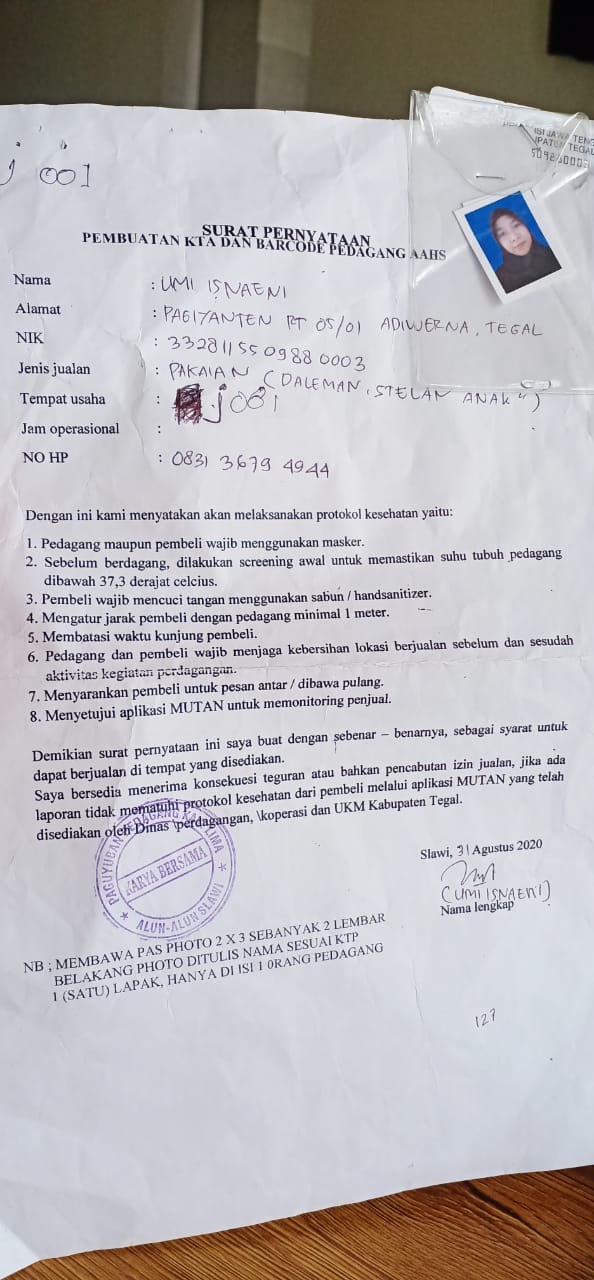 j 001
ISI JAWA TENG
PATEN TEGAL
SURAT PERNYATAAN
PEMBUATAN KTA DAN BARCODE PEDAGANG AAHS
Nama : UMI ISNAENI
Alamat : PAGIYANTEN RT 05/01 ADIWERNA, TEGAL
NIK : 3328115509880003
Jenis jualan : PAKAIAN (DALEMAN, STELAN ANAK")
Tempat usaha : j001
Jam operasional :
NO HP : 0831 3679 4944
Dengan ini kami menyatakan akan melaksanakan protokol kesehatan yaitu:
1. Pedagang maupun pembeli wajib menggunakan masker.
2. Sebelum berdagang, dilakukan screening awal untuk memastikan suhu tubuh pedagang
dibawah 37,3 derajat celcius.
3. Pembeli wajib mencuci tangan menggunakan sabun / handsanitizer.
4. Mengatur jarak pembeli dengan pedagang minimal 1 meter.
5. Membatasi waktu kunjung pembeli.
6. Pedagang dan pembeli wajib menjaga kebersihan lokasi berjualan sebelum dan sesudah
aktivitas kegiatan perdagangan.
7. Menyarankan pembeli untuk pesan antar / dibawa pulang.
8. Menyetujui aplikasi MUTAN untuk memonitoring penjual.
Demikian surat pernyataan ini saya buat dengan sebenar – benarnya, sebagai syarat untuk
dapat berjualan di tempat yang disediakan.
Saya bersedia menerima konsekuesi teguran atau bahkan pencabutan izin jualan, jika ada
laporan tidak mematuhi protokol kesehatan dari pembeli melalui aplikasi MUTAN yang telah
disediakan oleh Dinas \perdagangan, \koperasi dan UKM Kabupaten Tegal.
PAGUYUBAN PEDAGANG KAKI LIMA
KARYA BERSAMA
ALUN-ALUN SLAWI
Slawi, 31 Agustus 2020
(UMI ISNAENI)
Nama lengkap
NB ; MEMBAWA PAS PHOTO 2 X 3 SEBANYAK 2 LEMBAR
BELAKANG PHOTO DITULIS NAMA SESUAI KTP
1 (SATU) LAPAK, HANYA DI ISI 1 0RANG PEDAGANG
127